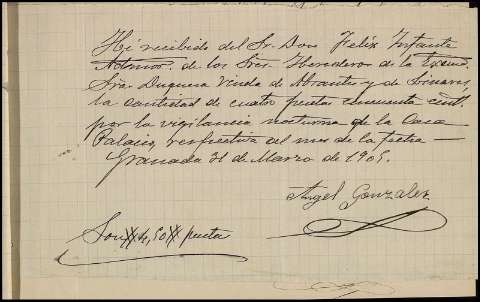 He recibido del Sr. Don Felix Infante
Admor. de los Sres. Herederos de la Excma.
Sra. Duquesa Viuda de Abrantes y de Linares,
la cantidad de cuatro pesetas cincuenta cent.
por la vigilancia nocturna de la Casa
Palacio, respectiva al mes de la fecha —
Granada 31 de Marzo de 1905.
Angel Gonzalez
Son 4,50 pesetas